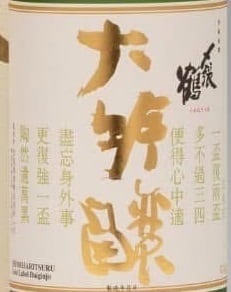 〆張鶴
一盃復兩盃
多不過三四
便得心中適
大吟醸
盡忘身外事
更復強一盃
陶然遺萬累
SHIMEHARITSURU
Gold Label Daiginjo